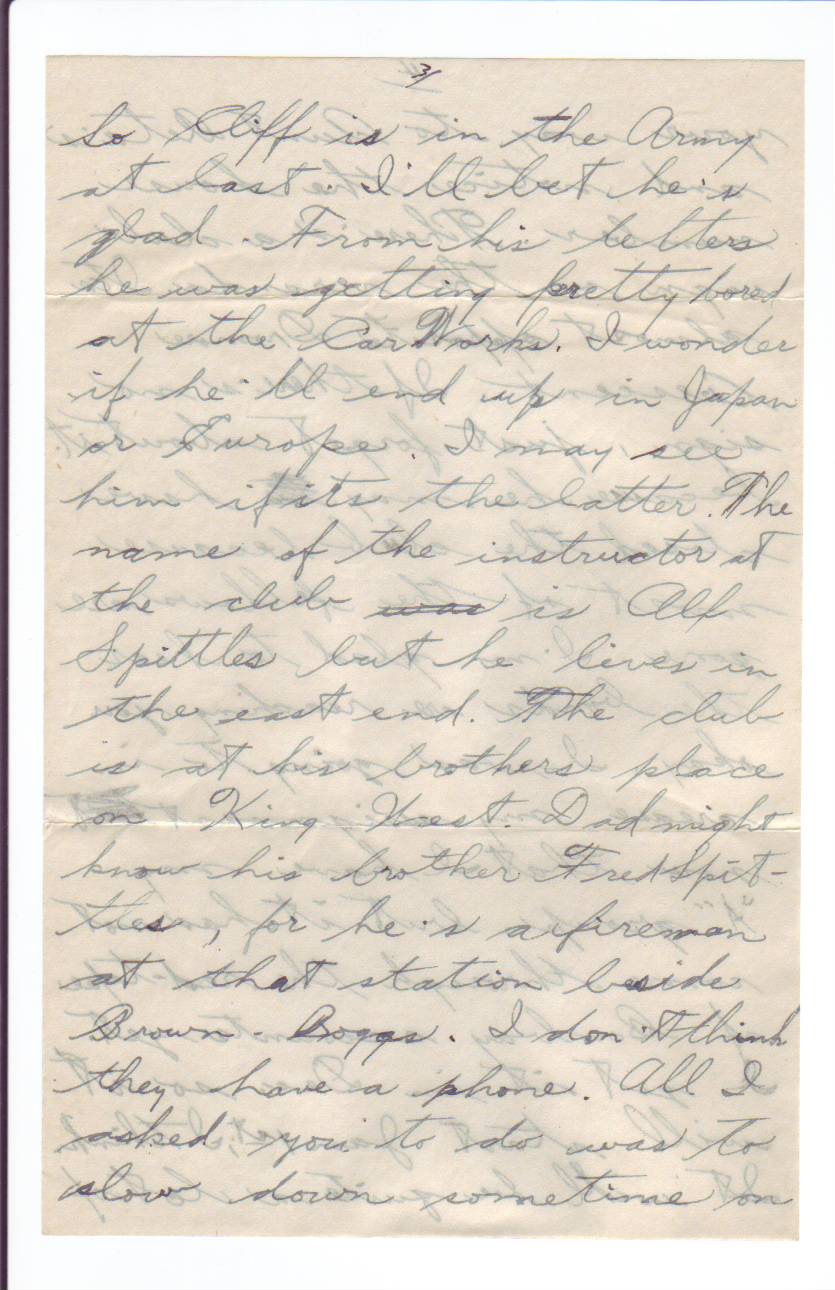 3/
So Cliff is in the Army
at last. I'll bet he's
glad. From his letters
he was getting pretty bored
at the Car Works. I wonder
if he'll end up in Japan
or Europe. I may see
him if its the latter. The
name of the instructor at
the club was is Alf
Spittles but he lives in
the east end. The club
is at his brothers place
on King West. Dad might
know his brother Fred Spit-
tles, for he's a fireman
at that station beside
Brown-Boggs. I don't think
they have a phone. All I
asked you to do was to
slow down sometime on